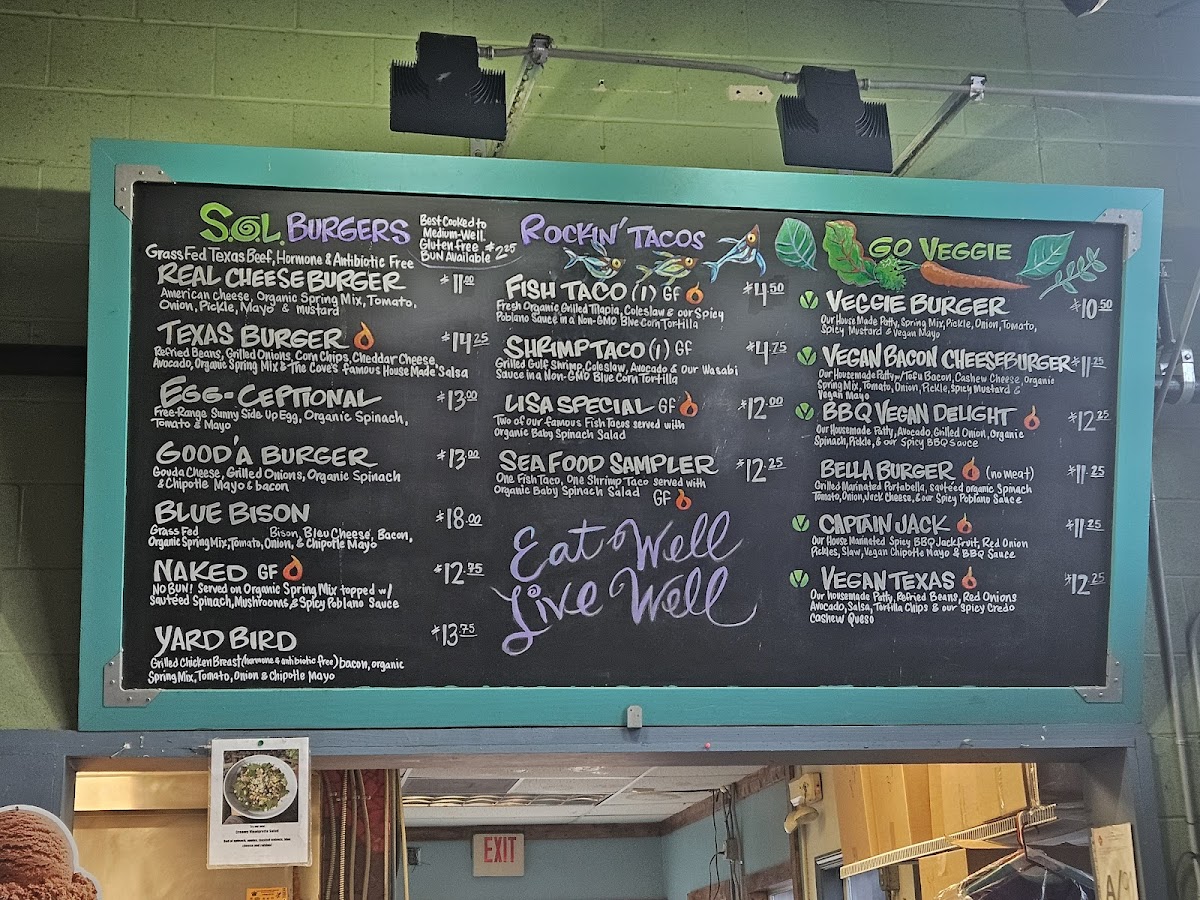 S.O.L. BURGERS
Best Cooked to
Medium-Well
Gluten free
BUN Available $2.25
Grass Fed Texas Beef, Hormone & Antibiotic Free
REAL CHEESE BURGER $11.00
American cheese, Organic Spring Mix, Tomato,
Onion, Pickle, Mayo & mustard
TEXAS BURGER $14.25
Refried Beans, Grilled Onions, Corn Chips, Cheddar Cheese,
Avocado, Organic Spring Mix & The Cove's famous House Made Salsa
EGG-CEPTIONAL $13.00
Free-Range Sunny Side Up Egg, Organic Spinach,
Tomato & Mayo
GOOD'A BURGER $13.00
Gouda Cheese, Grilled Onions, Organic Spinach
& Chipotle Mayo & bacon
BLUE BISON $18.00
Grass Fed Bison, Bleu Cheese, Bacon,
Organic Spring Mix, Tomato, Onion, & Chipotle Mayo
NAKED GF $12.75
NO BUN! Served on Organic Spring Mix topped w/
Sautéed Spinach, Mushrooms, & Spicy Poblano Sauce
YARD BIRD $13.75
Grilled Chicken Breast (hormone & antibiotic free) bacon, organic
Spring Mix, Tomato, Onion & Chipotle Mayo
ROCKIN' TACOS
FISH TACO (1) GF $4.50
Fresh Organic Grilled Tilapia, Coleslaw & our Spicy
Poblano Sauce in a Non-GMO Blue Corn Tortilla
SHRIMP TACO (1) GF $4.75
Grilled Gulf Shrimp, Coleslaw, Avocado & Our Wasabi
Sauce in a Non-GMO Blue Corn Tortilla
LISA SPECIAL GF $12.00
Two of our famous Fish Tacos served with
Organic Baby Spinach Salad
SEA FOOD SAMPLER $12.25
One Fish Taco, One Shrimp Taco served with
Organic Baby Spinach Salad GF
Eat Well
Live Well
GO VEGGIE
V VEGGIE BURGER $10.50
Our House Made Patty, Spring Mix, Pickle, Onion, Tomato,
Spicy Mustard & Vegan Mayo
V VEGAN BACON CHEESEBURGER $11.25
Our Housemade Patty w/ Tofu Bacon, Cashew Cheese, Organic
Spring Mix, Tomato, Onion, Pickle, Spicy Mustard &
Vegan Mayo
V BBQ VEGAN DELIGHT $12.25
Our Housemade Patty, Avocado, Grilled Onion, Organic
Spinach, Pickle, & our Spicy BBQ Sauce
BELLA BURGER (no meat) $11.25
Grilled Marinated Portabella, sautéed organic Spinach
Tomato, Onion, Jack Cheese, & our Spicy Poblano Sauce
V CAPTAIN JACK $11.25
Our House Marinated Spicy BBQ Jackfruit, Red Onion
Pickles, Slaw, Vegan Chipotle Mayo & BBQ Sauce
V VEGAN TEXAS $12.25
Our housemade Patty, Refried Beans, Red Onions
Avocado, Salsa, Tortilla Chips & our spicy Credo
Cashew Queso
EXIT
A